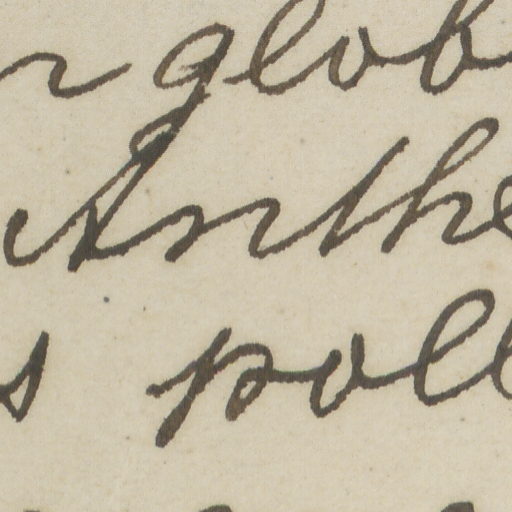 r glob
Anthe
s poll